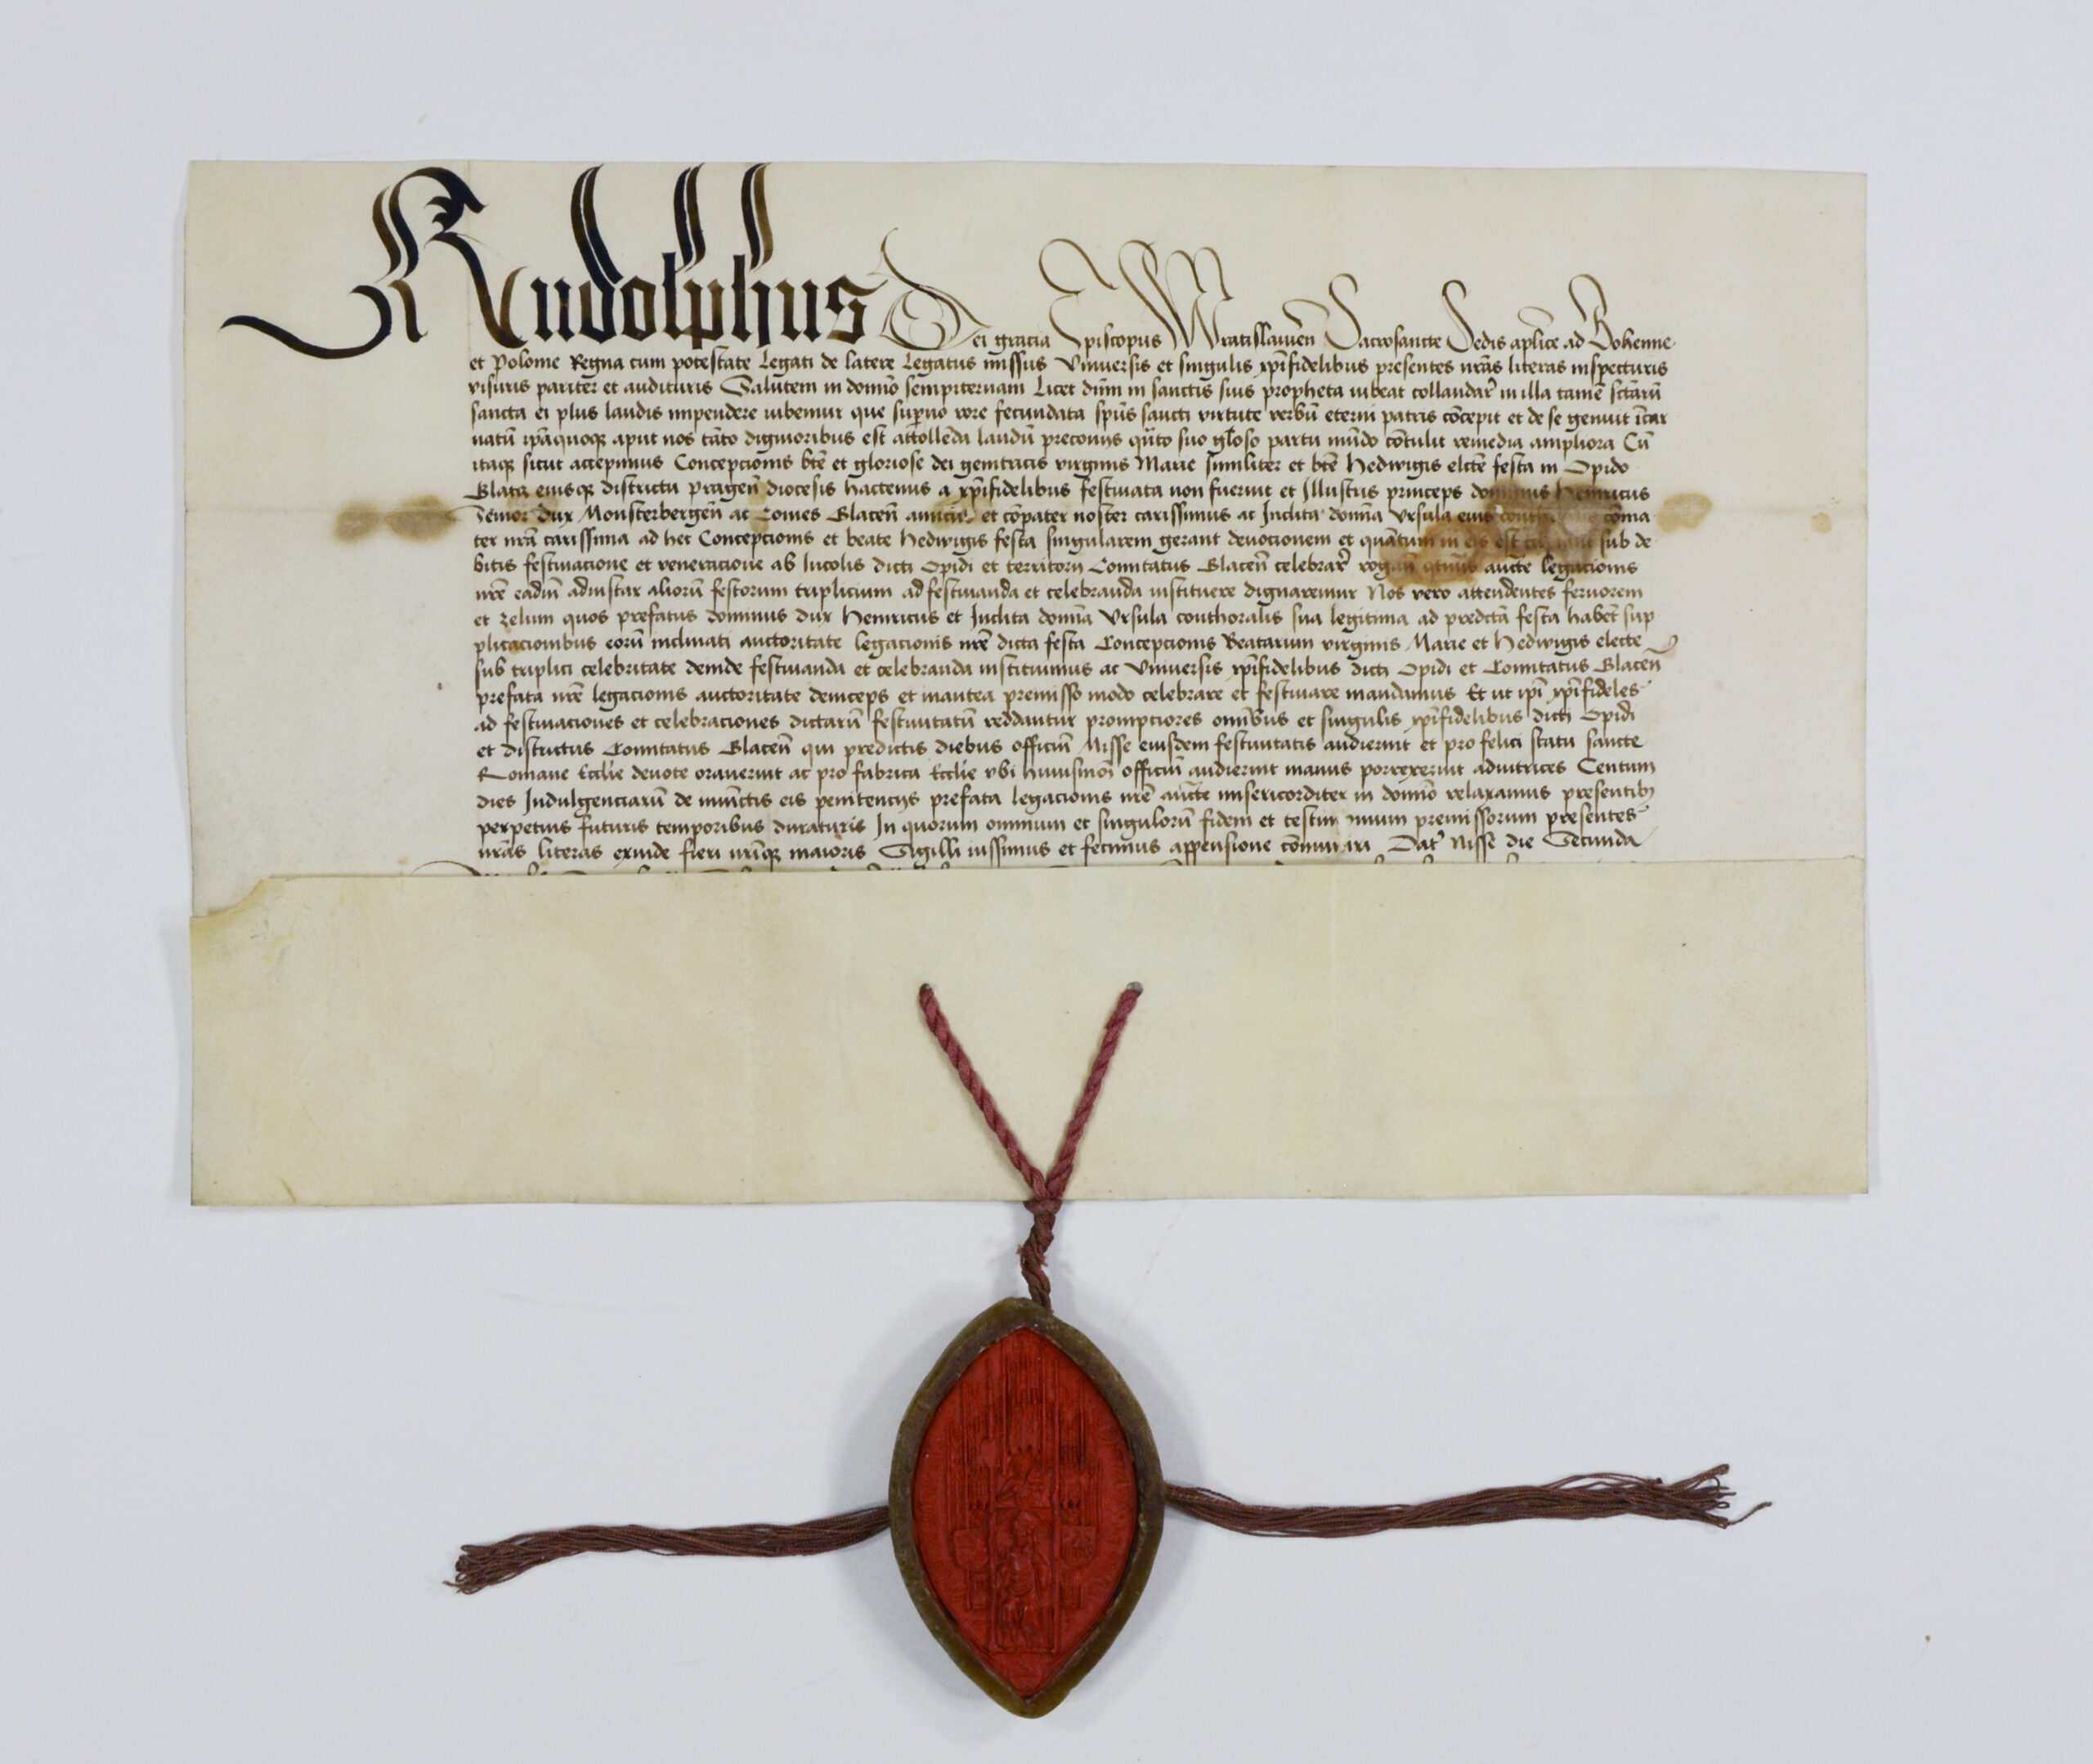 Rudolphus Dei gracia Episcopus Wratislauień Sacrosancte Sedis aplice ad Bohemie
et Polonie Regna cum potestate Legati de latere Legatus missus Vniuersis et singulis xpifidelibus presentes nrās literas inspecturis
visuris pariter et audituris Salutem in domīo sempiternam Licet dūm in sanctis suis propheta iubeat collaudar̄ in illa tamē sctārū
sancta ei plus laudis impendere iubemur que sup̄no rore fecundata spūs sancti virtute verbū eterni patris cōcepit et de se genuit īcar
natū ip̄aquoqȝ aput nos tāto dignioribus est attollēda laudū preconijs q̄nto suo gloso partu mūdo cōtulit remedia ampliora Cū
itaqȝ sicut accepimus Concepcionis btē et gloriose dei genitricis virginis Marie similiter et btē Hedwigis elcte festa in Opido
Glatz eiusqȝ districtu pragen̄ diocesis hactenus a xpifidelibus festiuata non fuerint et Illustris princeps dominus Henricus
Senior Dux Monsterbergen̄ ac Comes Glacen̄ et cōpater noster carissimus ac Inclita domīa Vrsula eius cōma
ter nrā carissima ad hec Concepcionis et beate Hedwigis festa singularem gerant deuocionem et quātum in eis est sub de
bitis festiuacione et veneracione ab Incolis dicti Opidi et territorij Comitatus Glacen̄ celebrar̄ rogan̄ q̄tnus aucte legacionis
nrē eadm̄ adinstar aliorū festorum triplicium ad festiuanda et celebranda instituere dignaremur Nos vero attendentes feruorem
et zelum quos prefatus dominus dux Henricus et Inclita domīa Vrsula conthoralis sua legitima ad predctā festa habet sup
plicacionibus eorū inclinati auctoritate legacionis nrē dicta festa Concepcionis Beatarum virginis Marie et Hedwigis electe
sub triplici celebritate deinde festiuanda et celebranda instituimus ac Vniuersis xpifidelibus dicti Opidi et Comitatus Glacen̄
prefata nrē legacionis auctoritate deinceps et inantea premisso modo celebrare et festiuare mandamus Et ut ipī xpifideles
ad festiuaciones et celebraciones dictarū festiuitatū reddantur prompciores omībus et singulis xpifidelibus dicti Opidi
et districtus Comitatus Glacen̄ qui predictis diebus officiū Misse eiusdem festiuitatis audierint et pro felici statu sancte
Romane Ecclīe deuote orauerint ac pro fabrica Ecclīe vbi huiusmōi officiū audierint manus porrexerint adiutrices Centum
dies Indulgenciarū de iniūctis eis penitencijs prefata legacionis nrē aucte misericorditer in domīo relaxamus presentibȝ
perpetuis futuris temporibus duraturis In quorum omnium et singulorū fidem et testimonium premissorum presentes
nrās literas exinde fieri nr̄iqȝ maioris Sigilli iussimus et fecimus appensione cōmuniri Dat̄ Nisse die Secunda